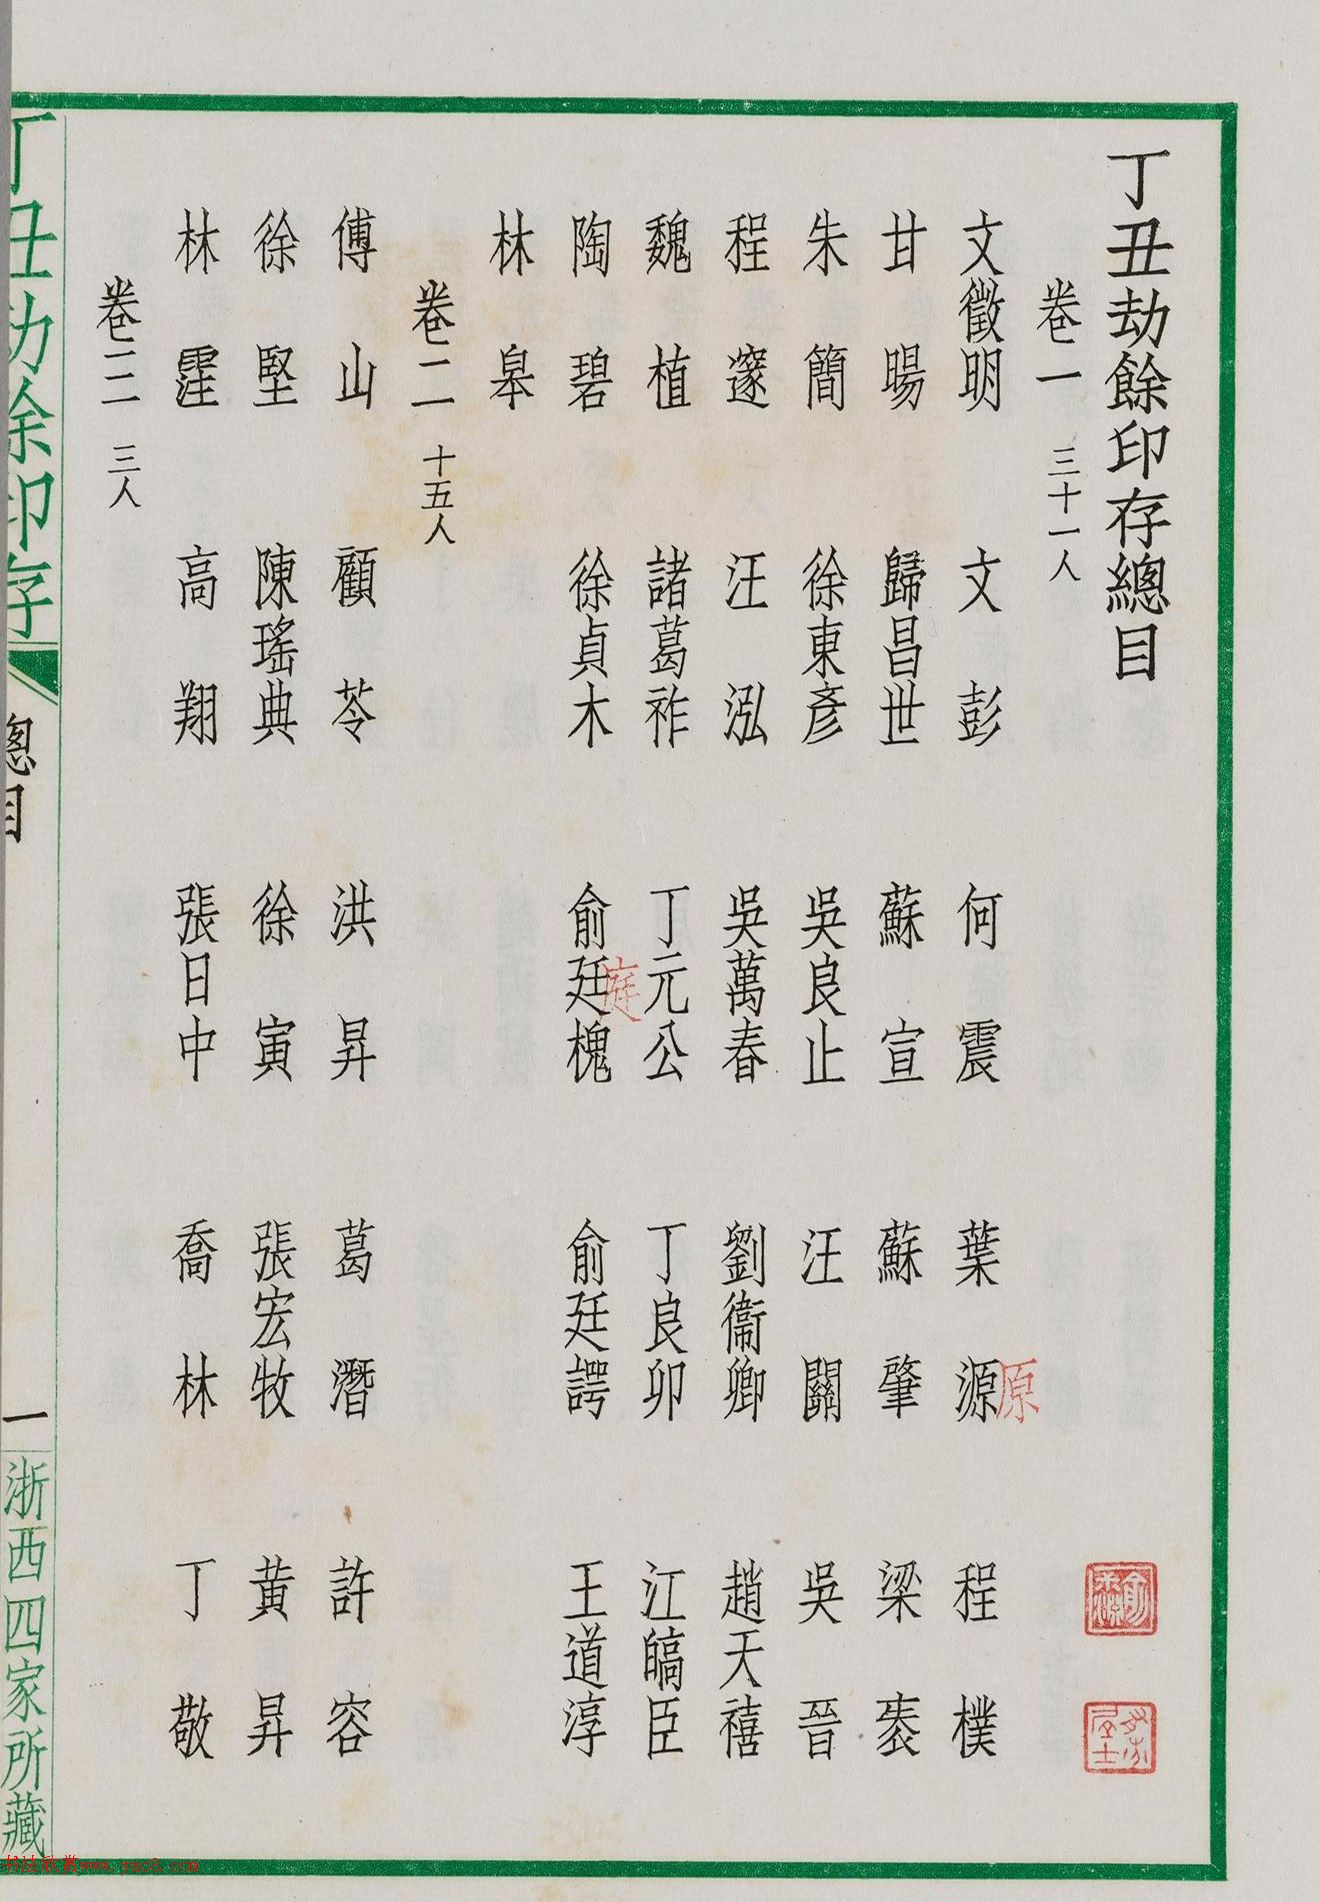 丁丑劫餘印存總目
卷一 三十一人
文徵明 文彭 何震 葉源 程樸
原
甘暘 歸昌世 蘇宣 蘇肇 梁袠
朱簡 徐東彥 吳良止 汪關 吳晉
程邃 汪泓 吳萬春 劉衞卿 趙天禧
魏植 諸葛祚 丁元公 丁良卯 江皜臣
陶碧 徐貞木 俞廷槐 俞廷諤 王道淳
庭
林皋
卷二 十五人
傅山 顧苓 洪昇 葛潛 許容
徐堅 陳瑤典 徐寅 張宏牧 黃昇
林霔 高翔 張日中 喬林 丁敬
卷三 三人
丁丑劫餘印存 總目 一 浙西四家所藏
书法欣赏www.yac8.com